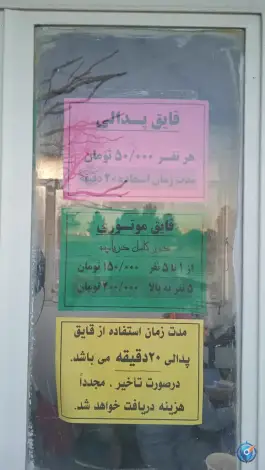 قایق پدالی
هر نفر ۵۰/۰۰۰ تومان
مدت زمان استفاده ۲۰ دقیقه
قایق موتوری
دور کامل دریاچه
از ۱ تا ۵ نفر ۱۵۰/۰۰۰ تومان
۵ نفر به بالا ۲۰۰/۰۰۰ تومان
مدت زمان استفاده از قایق
پدالی ۲۰دقیقه می باشد.
درصورت تاخیر ، مجدداً
هزینه دریافت خواهد شد.